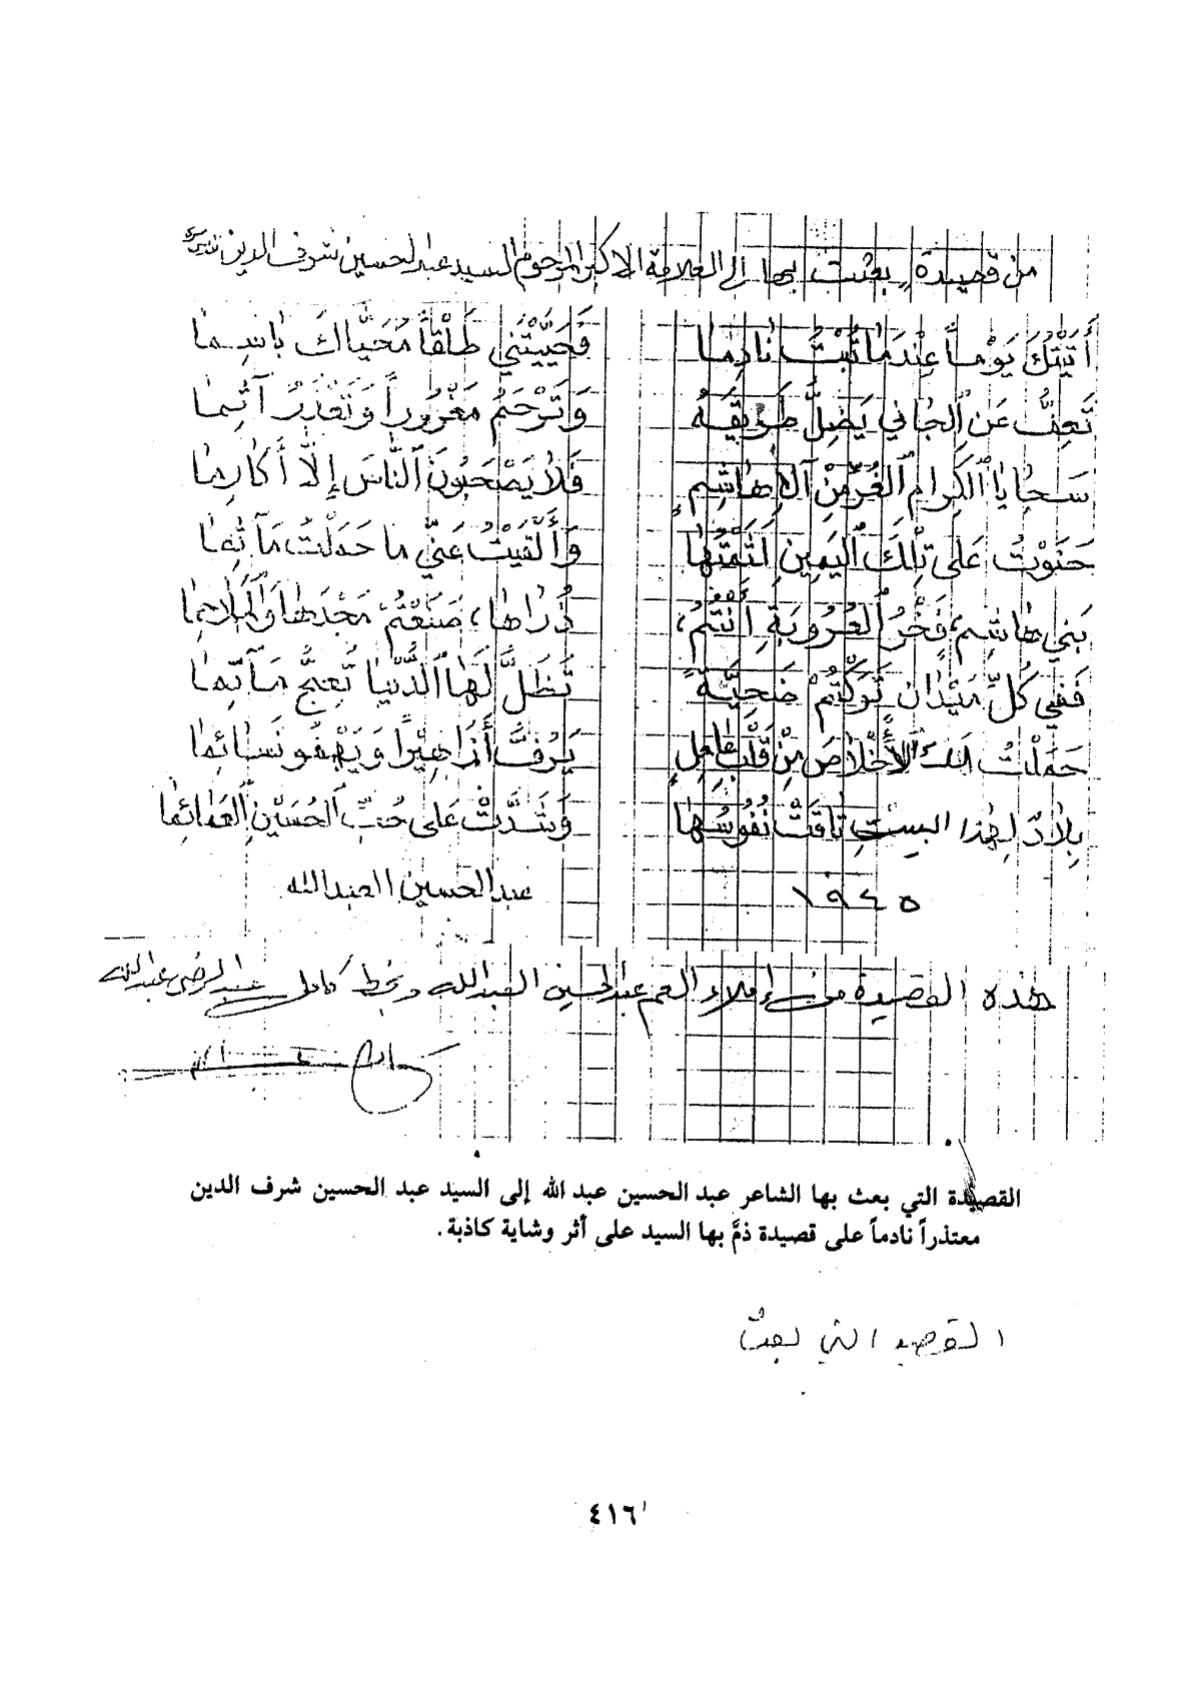 من قصيدة بعثت بها إلى العلامة الاكبر المرحوم السيد عبد الحسين شرف الدين
أَتَيْتُكَ يَوْماً عِنْدَمَا تُبْتُ نَادِمَا فَحَيَّيْتَنِي طَلْقاً مُحَيَّاكَ بَاسِمَا
تَعِفُّ عَنِ ٱلجَانِي يَضِلُّ طَرِيقَهُ وَتَرْحَمُ مَغْرُوراً وَتَعْذِرُ آثِمَا
سَجَايَا ٱلكِرَامِ ٱلغُرِّ مِنْ آلِ هَاشِمٍ فَلَا يَصْحَبُونَ ٱلنَّاسَ إِلَّا أَكَارِمَا
حَنَوْتُ عَلَى تِلْكَ ٱليَمِينِ لَثَمْتُهَا وَأَلْقَيْتُ عَنِّي مَا حَمَلْتُ مَآثِمَا
بَنِي هَاشِمٍ، فَخْرُ ٱلعُرُوبَةِ أَنْتُمُ، ذُرَاهَا، صَنَعْتُمْ مَجْدَهَا وَٱلمَلَاحِمَا
فَفِي كُلِّ مَيْدَانٍ تَرَكْتُمْ ضَحِيَّةً تَظَلُّ لَهَا ٱلدُّنْيَا تَعِجُّ مَآتِمَا
حَمَلْتُ لَكَ ٱلْأَخْلَاصَ مِنْ قَلْبِ عَامِلٍ يَرُفُّ أَزَاهِيْراً وَيَهْفُو نَسَائِمَا
بِلَادٌ لِهٰذا البيتِ تَاقَتْ نُفُوسُهَا وَشَدَّتْ عَلَى حُبِّ ٱلحُسَيْنِ ٱلعَمَائِمَا
١٩٤٥ عبد الحسين العبدالله
هذه القصيدة من إملاء العم عبد الحسين العبدالله وبخط كامل عبد الرضى عبدالله
القصيدة التي بعث بها الشاعر عبد الحسين عبد الله إلى السيد عبد الحسين شرف الدين
معتذراً نادماً على قصيدة ذمَّ بها السيد على أثر وشاية كاذبة.
القصيد التي بعث
٤١٦